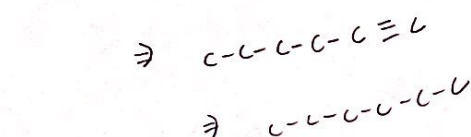 ⇒ C-C-C-C-C≡C
⇒ C-C-C-C-C-C